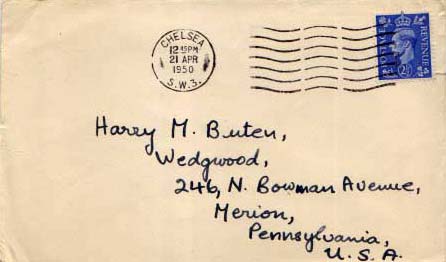 CHELSEA
12 15PM
21 APR
1950
S.W.3.
POSTAGE REVENUE
2½
Harry M. Buten,
Wedgwood,
246, N. Bowman Avenue,
Merion,
Pennsylvania,
U.S.A.